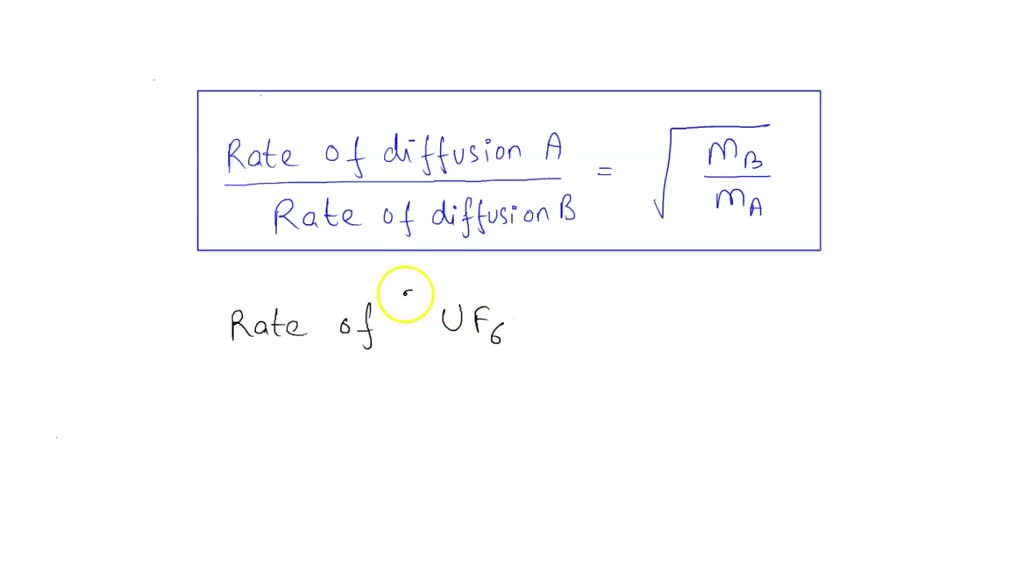 Rate of diffusion A
Rate of diffusion B
=
√
mB
mA
Rate of UF6